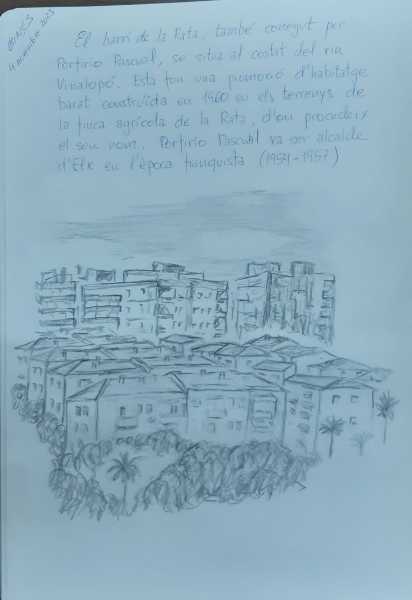 4 novembre 2023
El barri de la Rata, també conegut per
Porfirio Pascual, se situa al costat del riu
Vinalopó. Esta fou una promoció d'habitatge
barat construïda en 1960 en els terrenys de
la finca agrícola de la Rata, d'ou procedeix
el seu nom. Porfirio Pascual va ser alcalde
d'Elx en l'època franquista (1954-1957)